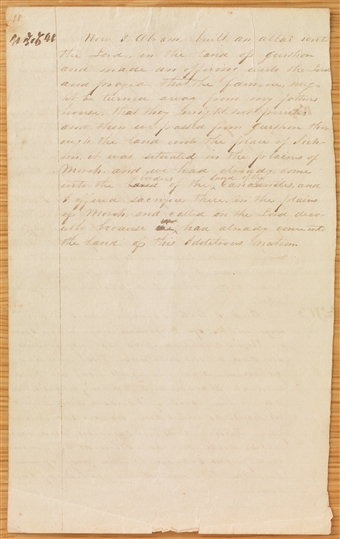 Now I, Abram, built an altar unto
the Lord, in the land of Gershon
and made an offering unto the Lord
and prayed that the famine mig-
ht be turned away from my fathers
house that they might not perish.
and then we passed from Gershon thr-
ough the land unto the place of
it was situated in the plains of
Moreh, and we had already come
borders of land of the
into the land of the Canaanites, and
I offered sacrifice there in the plains
of Moreh, and called on the Lord dev-
outly because we had already come into
the land of this Idolitious Nation